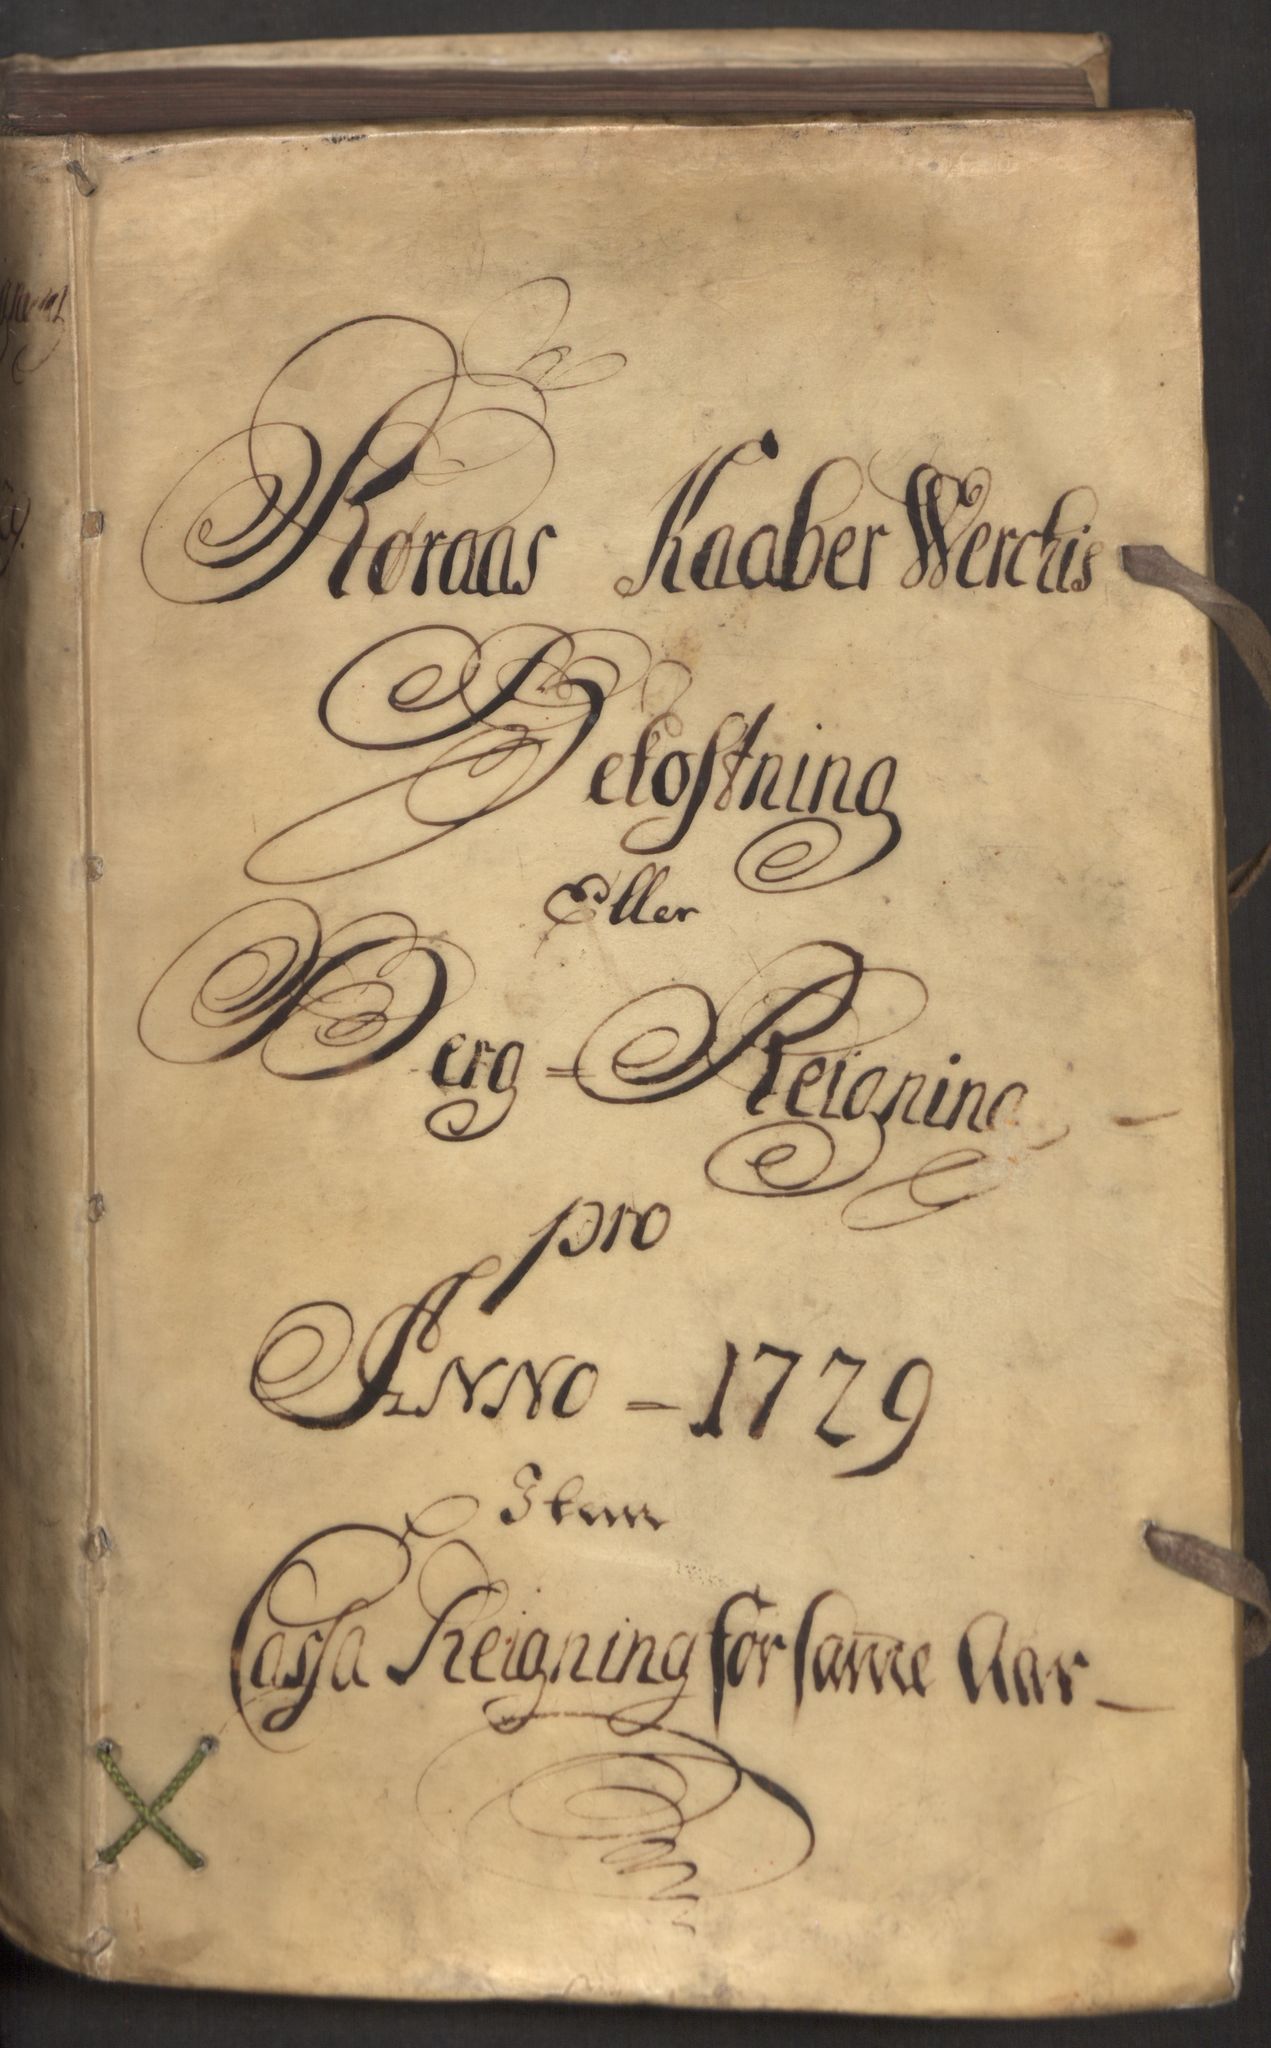 Røraas Kaaber Werckis
Bekostning
Eller
Berg=Reigning
pro
ANNO=1729
Item
Cassa Reigning for sam̅e Aar